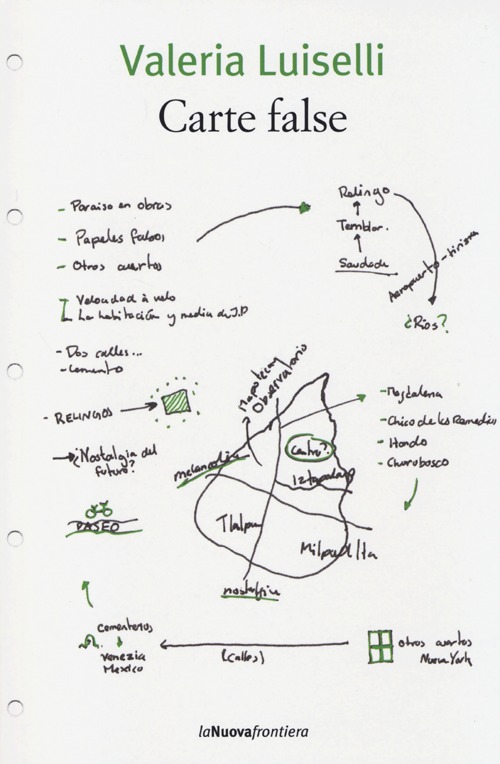 Valeria Luiselli
Carte false
- Paraiso en obras
- Papeles falsos
- Otros cuartos
Velocidad à velo
La habitación y media de J.P
- Dos calles...
- cemento
- RELINGOS
¿Nostalgia del
futuro?
PASEO
Relingo
Temblor.
Saudade
Aeropuerto - tiriera
¿Ríos?
Mapoteca y
Observatorio
melancolía
Centro?
Iztapalapa
Tlalpan
Milpa Alta
nostalgia
- Magdalena
- Chico de los Remedios
- Hondo
- Churubosco
cementerios
venezia
Mexico
(calles)
otros cuartos
Nueva York
laNuovafrontiera